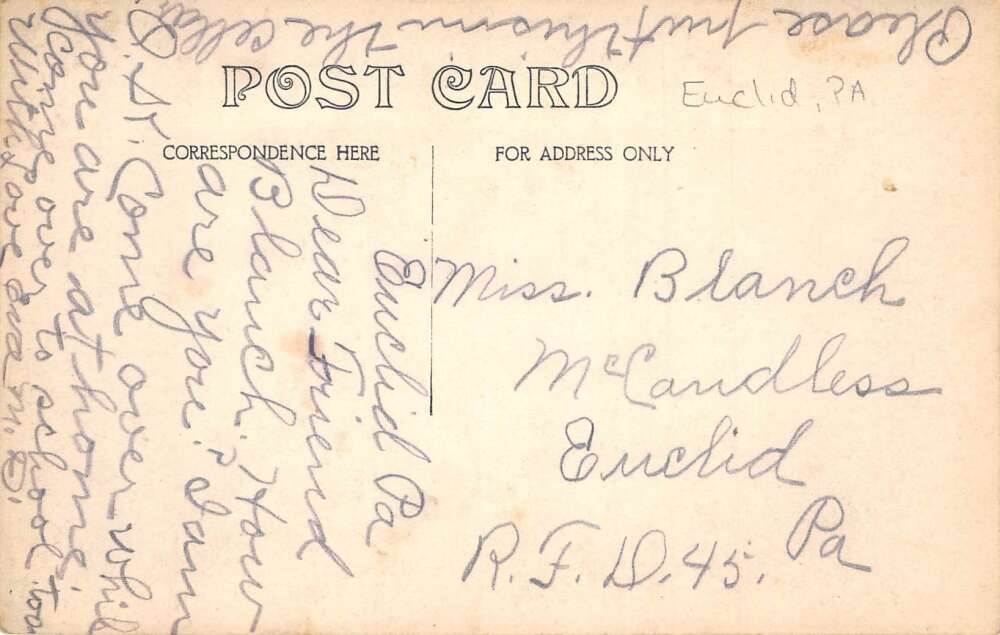 POST CARD
Euclid, PA
CORRESPONDENCE HERE
FOR ADDRESS ONLY
Euclid Pa
Dear Friend
Blanch. How
are you? I am
O.K. Come over whil
you are at home.
Come over to school too
With love Eva M. B.
Please put this in the cellar
Miss. Blanch
McCandless
Euclid
Pa
R. F. D. 45.